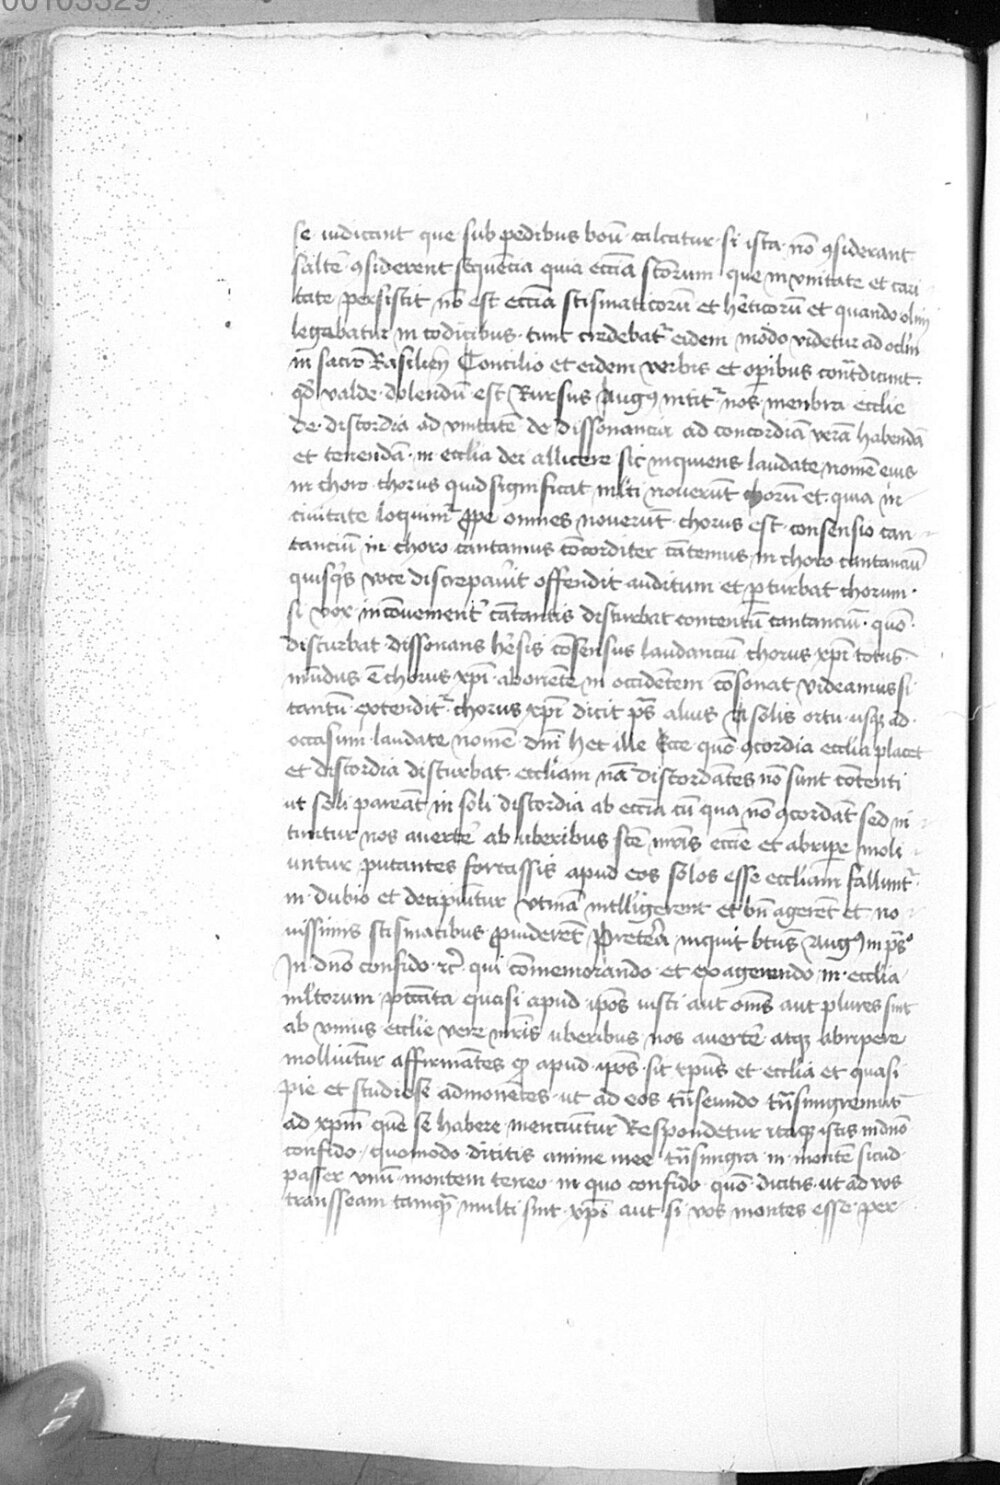 00103329
se iudicant que sub pedibus boū calcatur si ista nō ꝯsiderant
saltē ꝯsiderent sequēcia quia eccīa sc̄torum que in vnitate et cari
tate persistit nō est eccīa scismaticorū et hēticorū et quando olim
legebatur in codicibus tunc credebatᵉ eidem modo videtur ad oclm̄
in sacro Basilien̄ Concilio et eidem verbis et opibus contͣdicunt
qd̄ valde dolendū est Rursus Augꝰ nitit͛ nos menbra ecclie
de discordia ad vnitatē de dissonancia ad concordiā verā habendā
et tenendā in ecclīa dei allicere sic inquiens laudate nomē eius
in choro chorus quid significat ml̄ti nouerūt chorū et quia in
ciuitate loquim͛ ꝓpe omnes nouerūt chorus est consensio can
tanciū in choro cantamus cōcorditer cātemus in choro cantanciū
quisq̄s voce discrepauīt offendit auditum et ꝑturbat chorum
si vox incōuenient͛ cātantis disturbat contentū cantanciū quō
disturbat dissonans hēsis cōsensus laudanciū chorus xpī totus
mūdus ē chorus xpī ab oriēte in occidētem cōsonat videamus si
tantū extendit͛ chorus xpī dicit ps̄ alius A solis ortu usqꝫ ad
occasum laudate nomē dn̄i hec ille Ecce quō ꝯcordia ecclīa placet
et discordia disturbat eccliam nā discordātes nō sunt cōtenti
ut soli pareāt in soli discordia ab eccīa cū qua nō ꝯcordāt sed ni
tūtur nos auertē ab uberibus sc̄e mr̄is eccīe et abripe moli
untur putantes fortassis apud eos solos esse eccliam fallunt͛
in dubio et decipiūtur vtinā intlligerent et bn̄ agerēt et no
uissimis scismatibus ꝓuiderēt Pretera inquit bt̄us Augꝰ in ps̄o
In dn̄o confido ꝛc̄ qui cōmemorando et exagerendo in ecclia
ml̄torum pcc̄ata quasi apud ipōs iusti aut om̄s aut plures sint
ab vnius ecclīe vere mr̄is uberibus nos auertē atqꝫ abripere
molliuntur affirmātes ꝙ apud ipōs sit xp̄us et ecclīa et quasi
pie et studiose admonētes ut ad eos tn̄seundo tn̄smigremus
ad xpm̄ quē se habere menciūtur Respondetur itaqꝫ istis in dn̄o
confido quomodo dicitis anime mee tn̄smigra in montē sicud
passer vnū montem teneo in quo confido quō dicitis ut ad vos
transseam tamqͣ multi sint xpī aut si vos montes esse per